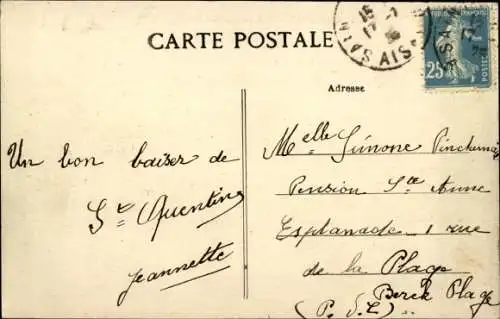 CARTE POSTALE
Adresse
Un bon baiser de
St Quentin
Jeannette
Melle Simone
Pension Ste Anne
Esplanade 1 rue
de la Plage
Berck Plage
(P. d. C)
25
POSTES
AIS